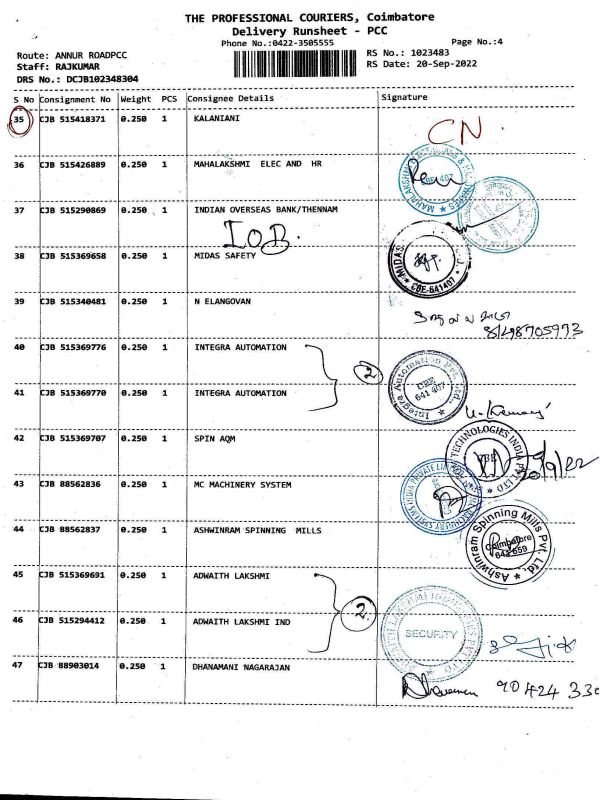 THE PROFESSIONAL COURIERS, Coimbatore
Delivery Runsheet - PCC
Phone No.:0422-3505555
Page No.:4
Route: ANNUR ROADPCC
RS No.: 1023483
Staff: RAJKUMAR
RS Date: 20-Sep-2022
DRS No.: DCJB102348304
S No Consignment No Weight PCS Consignee Details Signature
35 CJB 515418371 0.250 1 KALANIANI
CN
36 CJB 515426889 0.250 1 MAHALAKSHMI ELEC AND HR
37 CJB 515290869 0.250 1 INDIAN OVERSEAS BANK/THENNAM
IOB.
38 CJB 515369658 0.250 1 MIDAS SAFETY
MIDAS
CBE-641407
39 CJB 515340481 0.250 1 N ELANGOVAN
40 CJB 515369776 0.250 1 INTEGRA AUTOMATION
2
Integra Automation Pvt. Ltd.,
CBE
641 407
41 CJB 515369770 0.250 1 INTEGRA AUTOMATION
42 CJB 515369707 0.250 1 SPIN AQM
TECHNOLOGIES INDIA PVT LTD
20/9/22
43 CJB 88562836 0.250 1 MC MACHINERY SYSTEM
44 CJB 88562837 0.250 1 ASHWINRAM SPINNING MILLS
Ashwinram Spinning Mills Pvt. Ltd.
Coimbatore
641 659
45 CJB 515369691 0.250 1 ADWAITH LAKSHMI
2
46 CJB 515294412 0.250 1 ADWAITH LAKSHMI IND
SECURITY
47 CJB 88903014 0.250 1 DHANAMANI NAGARAJAN
90424 330